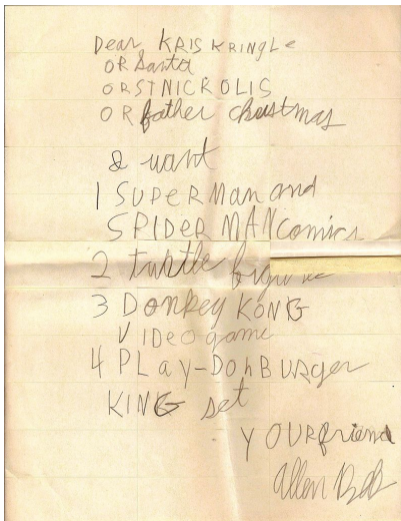 Dear KRIS KRINGLe
OR Santa
OR ST NICROLIS
OR father christmas
I want
1 SUPERMan and
SPIDER MAN comics
2 turtle
3 DonKey KONG
VIDeo game
4 PLay-DOh BURger
KING set
YOUR friend
Allen